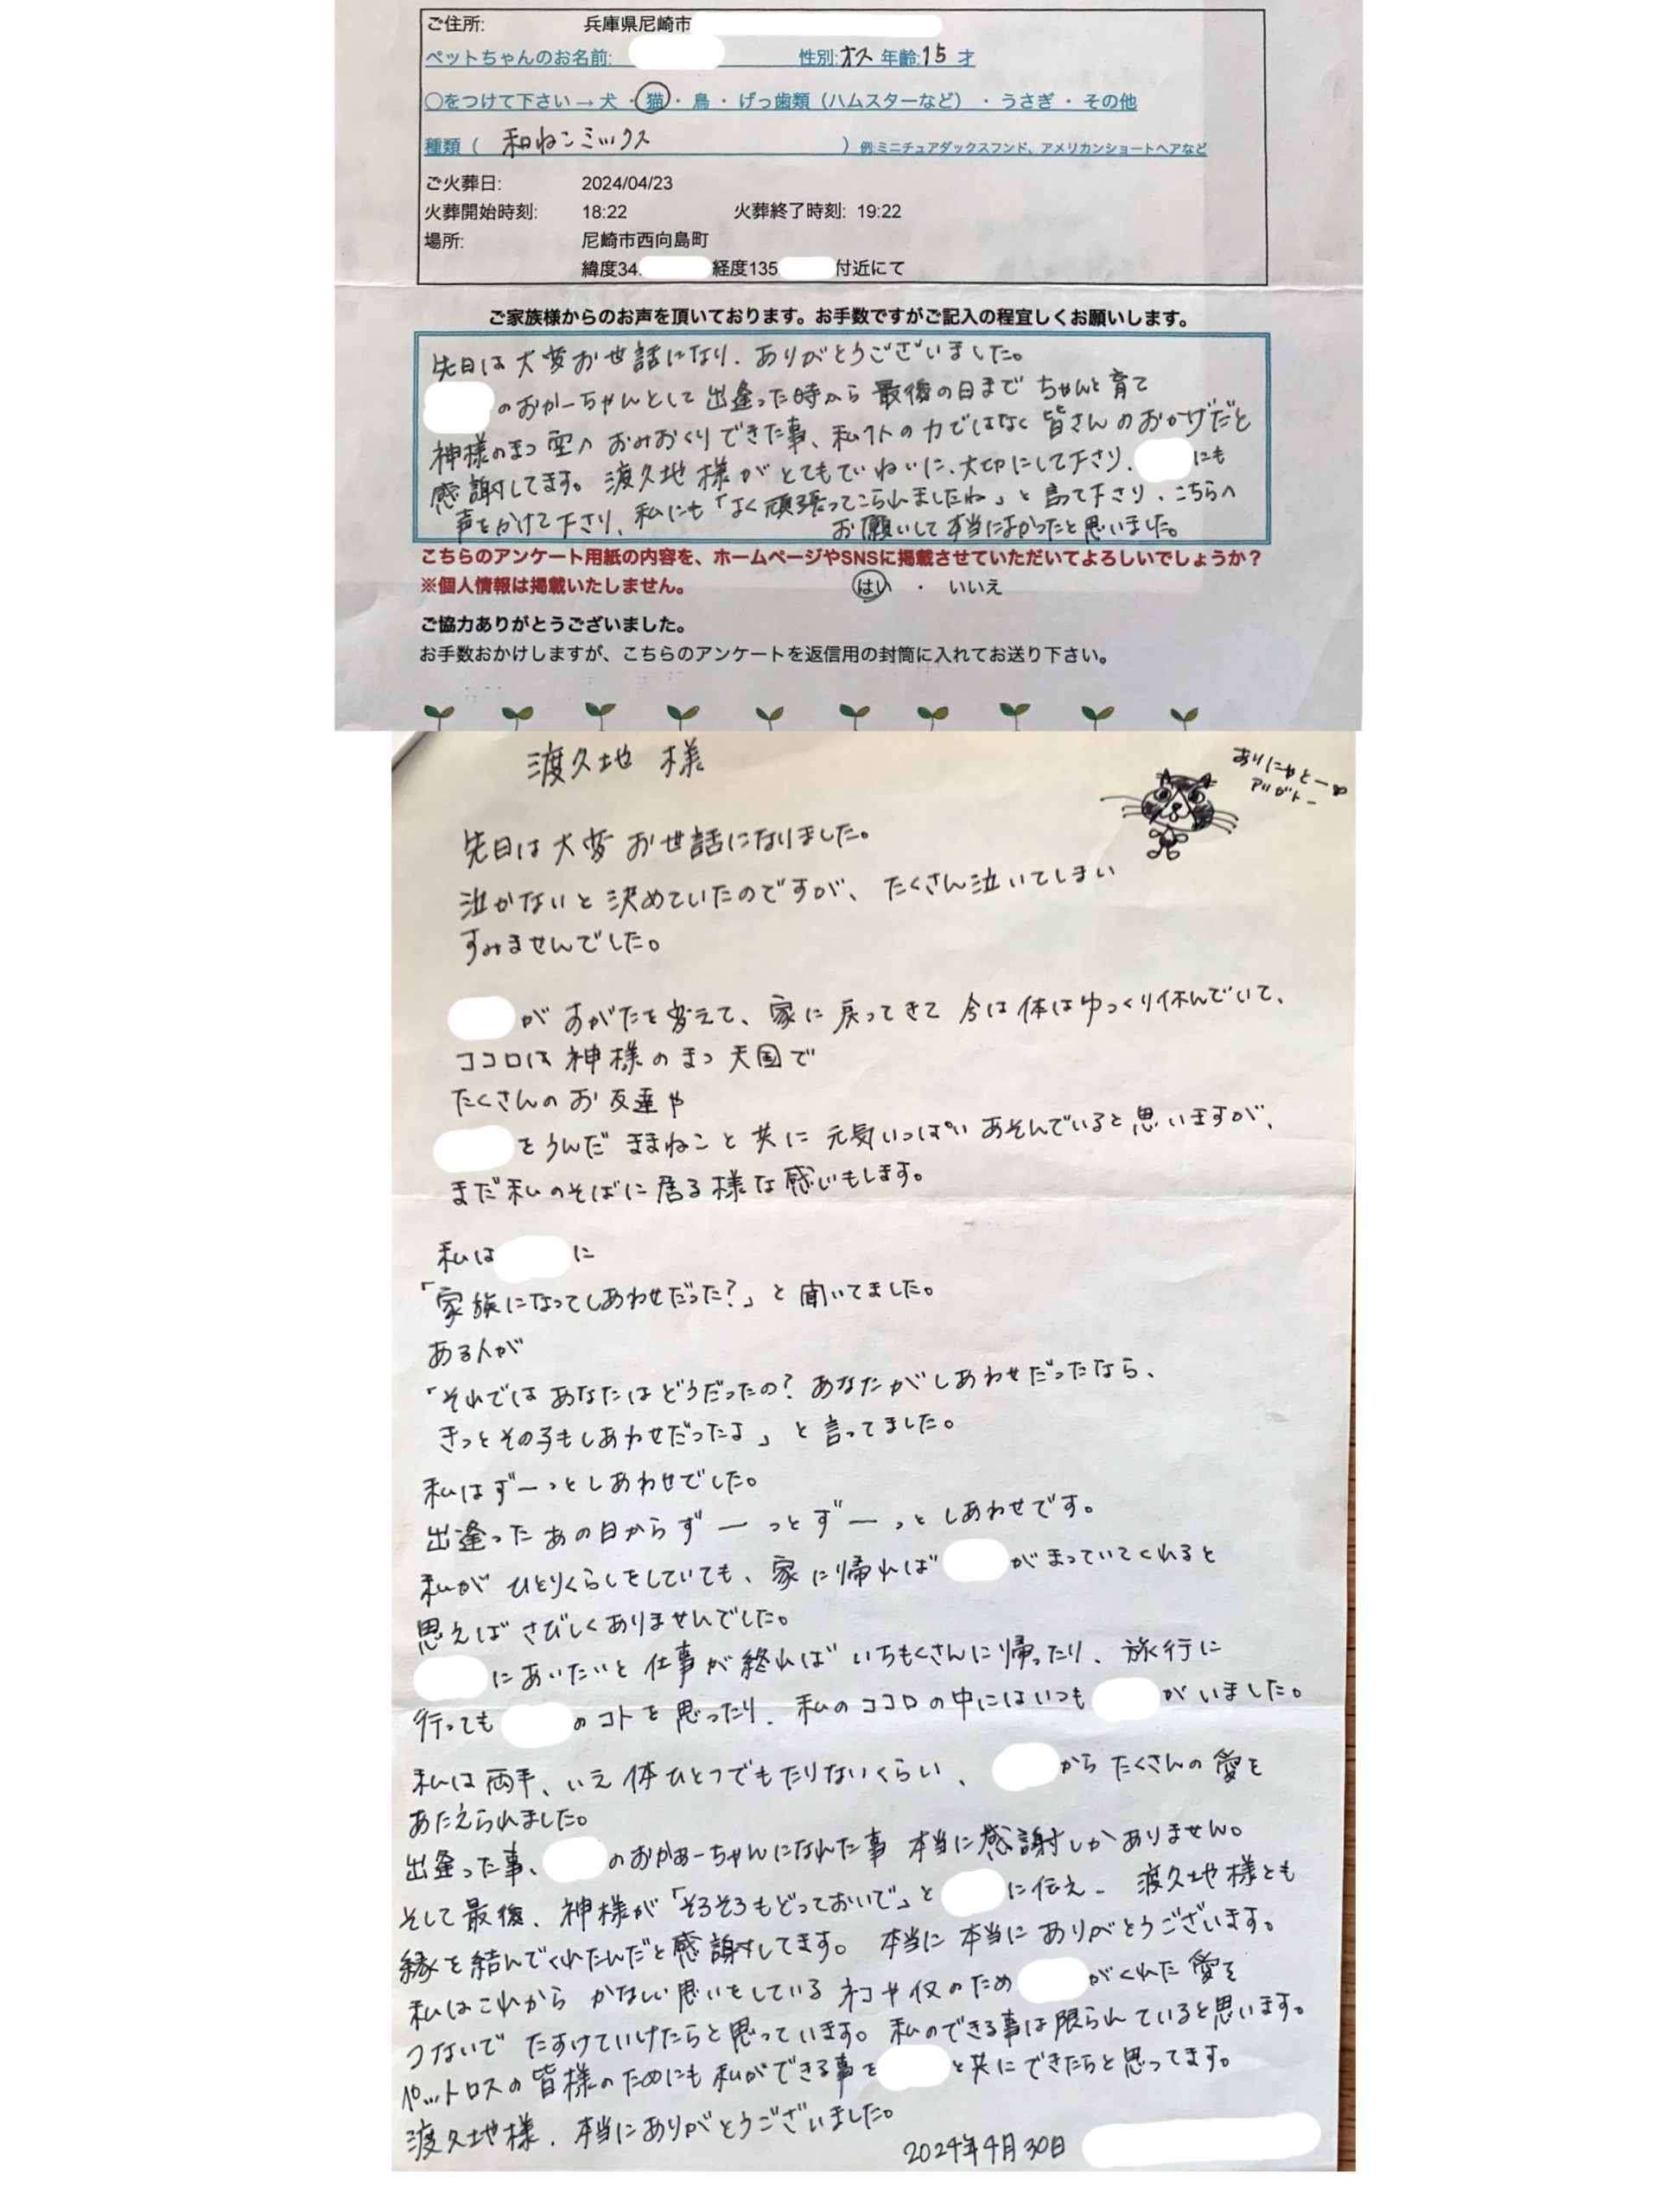 ご住所: 兵庫県尼崎市
ペットちゃんのお名前: 性別:オス 年齢:15 才
〇をつけて下さい→ 犬 ・ 猫 ・ 鳥 ・ げっ歯類（ハムスターなど） ・ うさぎ ・ その他
種類（ 和ねこミックス ）例:ミニチュアダックスフンド、アメリカンショートヘアなど
ご火葬日: 2024/04/23
火葬開始時刻: 18:22 火葬終了時刻: 19:22
場所: 尼崎市西向島町
緯度34. 経度135 付近にて
ご家族様からのお声を頂いております。お手数ですがご記入の程宜しくお願いします。
先日は大変お世話になり、ありがとうございました。
のおかーちゃんとして出逢った時から最後の日までちゃんと育て
神様のまつ空へおみおくりできた事、私1人の力ではなく皆さんのおかげだと
感謝してます。渡久地様がとてもていねいに、大切にして下さり、にも
声をかけて下さり、私にも「よく頑張ってこられましたね」と言って下さり、こちらへ
お願いして本当によかったと思いました。
こちらのアンケート用紙の内容を、ホームページやSNSに掲載させていただいてよろしいでしょうか？
※個人情報は掲載いたしません。 はい ・ いいえ
ご協力ありがとうございました。
お手数おかけしますが、こちらのアンケートを返信用の封筒に入れてお送り下さい。
渡久地 様
ありにゃとー♡
アリガトー
先日は大変お世話になりました。
泣かないと決めていたのですが、たくさん泣いてしまい
すみませんでした。
がすがたを変えて、家に戻ってきて今は体はゆっくり休んでいて、
ココロは神様のまつ天国で
たくさんのお友達や
をうんだままねこと共に元気いっぱいあそんでいると思いますが、
まだ私のそばに居る様な感じもします。
私は に
「家族になってしあわせだった?」と聞いてました。
ある人が
「それではあなたはどうだったの? あなたがしあわせだったなら、
きっとその子もしあわせだったよ」と言ってました。
私はずーっとしあわせでした。
出逢ったあの日からずーっとずーっとしあわせです。
私がひとりくらしをしていても、家に帰れば がまっていてくれると
思えばさびしくありませんでした。
にあいたいと仕事が終ればいちもくさんに帰ったり、旅行に
行っても のコトを思ったり、私のココロの中にはいつも がいました。
私は両手、いえ体ひとつでもたりないくらい、 からたくさんの愛を
あたえられました。
出逢った事、 のおかぁーちゃんになれた事 本当に感謝しかありません。
そして最後、神様が「そろそろもどっておいで」と に伝え、渡久地様とも
縁を結んでくれたんだと感謝してます。本当に本当にありがとうございます。
私はこれからかなしい思いをしているネコや のため がくれた愛を
つないでたすけていけたらと思っています。私のできる事は限られていると思います。
ペットロスの皆様のためにも私ができる事を と共にできたらと思ってます。
渡久地様、本当にありがとうございました。
2024年4月30日